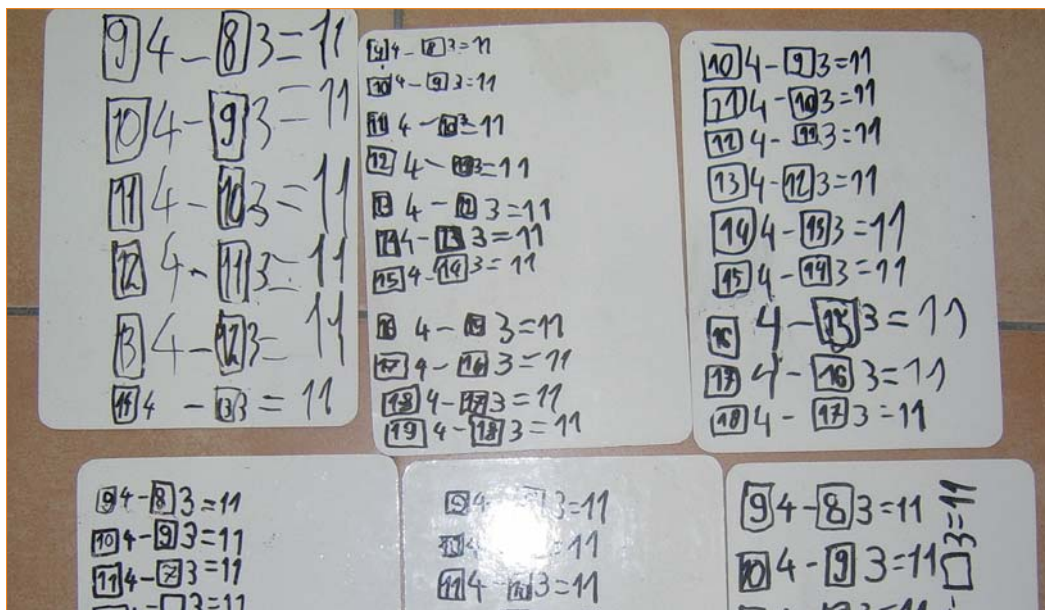 9 4 - 8 3 = 11
10 4 - 9 3 = 11
11 4 - 10 3 = 11
12 4 - 11 3 = 11
13 4 - 12 3 = 11
14 4 - 13 3 = 11
9 4 - 8 3 = 11
10 4 - 9 3 = 11
11 4 - 10 3 = 11
12 4 - 11 3 = 11
13 4 - 12 3 = 11
14 4 - 13 3 = 11
15 4 - 14 3 = 11
16 4 - 15 3 = 11
17 4 - 16 3 = 11
18 4 - 17 3 = 11
19 4 - 18 3 = 11
10 4 - 9 3 = 11
11 4 - 10 3 = 11
12 4 - 11 3 = 11
13 4 - 12 3 = 11
14 4 - 13 3 = 11
15 4 - 14 3 = 11
16 4 - 15 3 = 11
17 4 - 16 3 = 11
18 4 - 17 3 = 11
9 4 - 8 3 = 11
10 4 - 9 3 = 11
11 4 - 3 = 11
4 - 3 = 11
9 4 - 3 = 11
4 - = 11
11 4 - 10 3 = 11
9 4 - 8 3 = 11
10 4 - 9 3 = 11
3 = 11
3 = 11